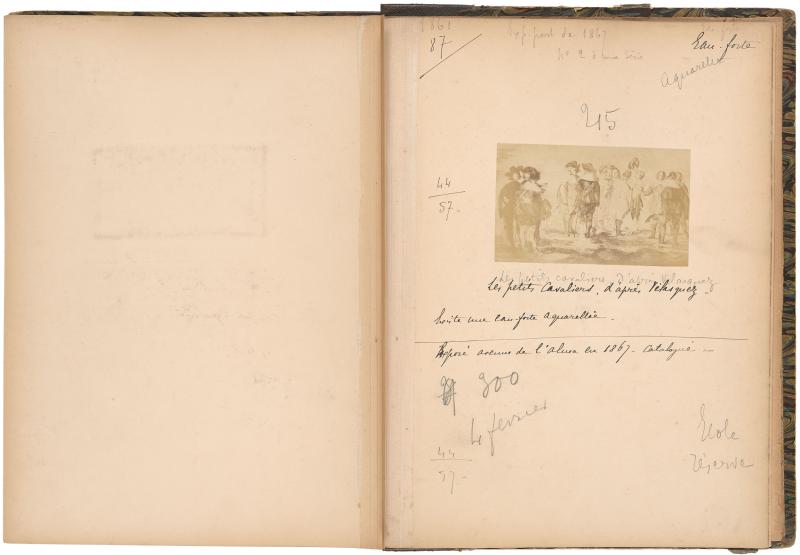 1861
87
Exp. part de 1867
No 2 d'une série
Eau-forte
aquarellée
215
44
57-
Les petits cavaliers, d'après Vélasquez
Les petits Cavaliers, d'après Vélasquez
une eau-forte aquarellée.
Exposé avenue de l'alma en 1867. Catalogué
300
4 février
44
57-
École
réserve